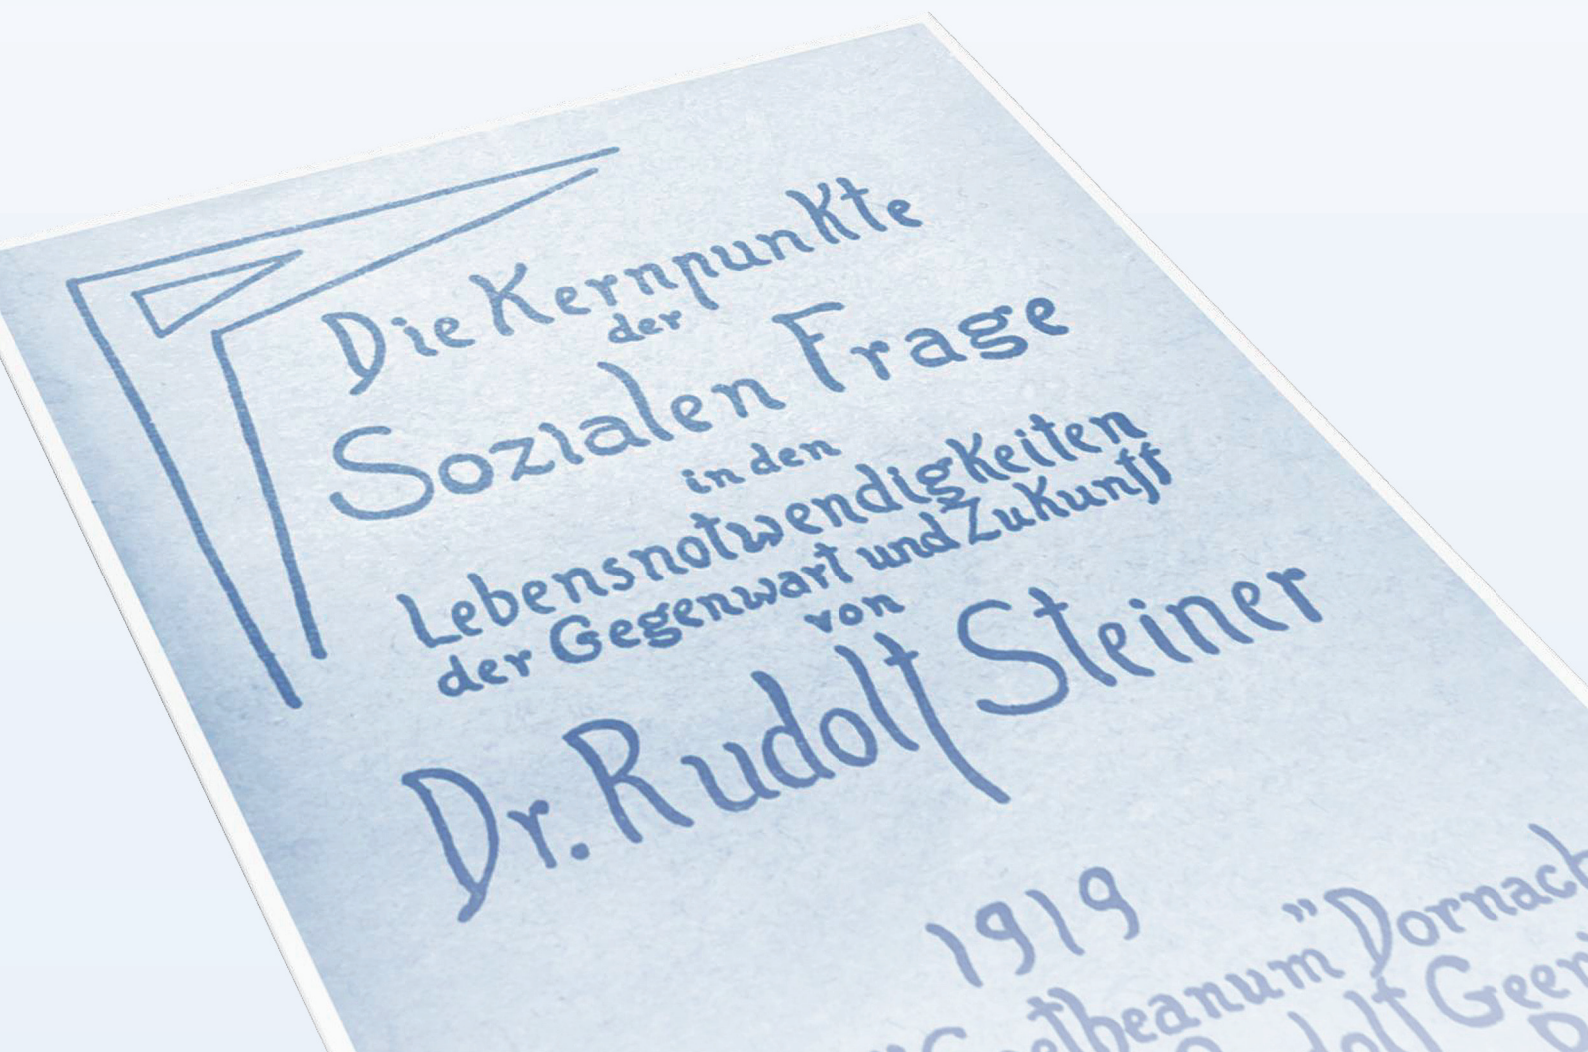 Die Kernpunkte
der
Sozialen Frage
in den
Lebensnotwendigkeiten
der Gegenwart und Zukunft
von
Dr. Rudolf Steiner
1919
Goetheanum" Dornach